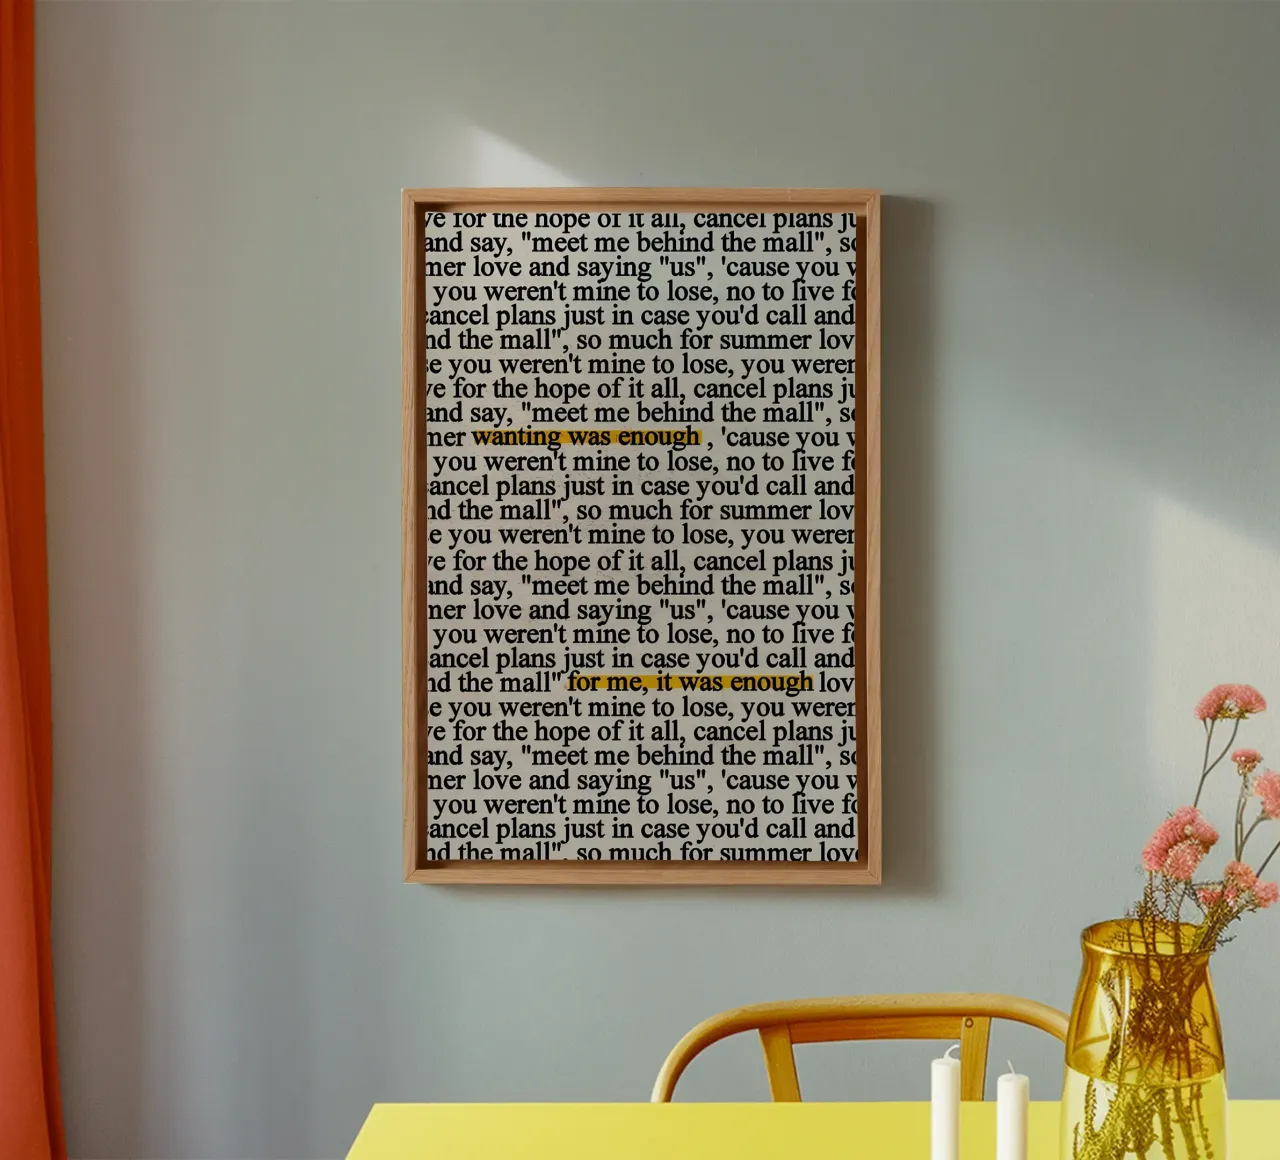 ve for the hope of it all, cancel plans ju
and say, "meet me behind the mall", so
mer love and saying "us", 'cause you w
you weren't mine to lose, no to live fo
cancel plans just in case you'd call and
nd the mall", so much for summer lov
se you weren't mine to lose, you weren
ve for the hope of it all, cancel plans ju
and say, "meet me behind the mall", so
mer wanting was enough , 'cause you w
you weren't mine to lose, no to live fo
ancel plans just in case you'd call and
nd the mall", so much for summer lov
e you weren't mine to lose, you weren
ve for the hope of it all, cancel plans ju
and say, "meet me behind the mall", so
mer love and saying "us", 'cause you w
you weren't mine to lose, no to live fo
ancel plans just in case you'd call and
nd the mall" for me, it was enough lov
e you weren't mine to lose, you weren
ve for the hope of it all, cancel plans ju
and say, "meet me behind the mall", so
mer love and saying "us", 'cause you w
you weren't mine to lose, no to live fo
cancel plans just in case you'd call and
nd the mall", so much for summer love